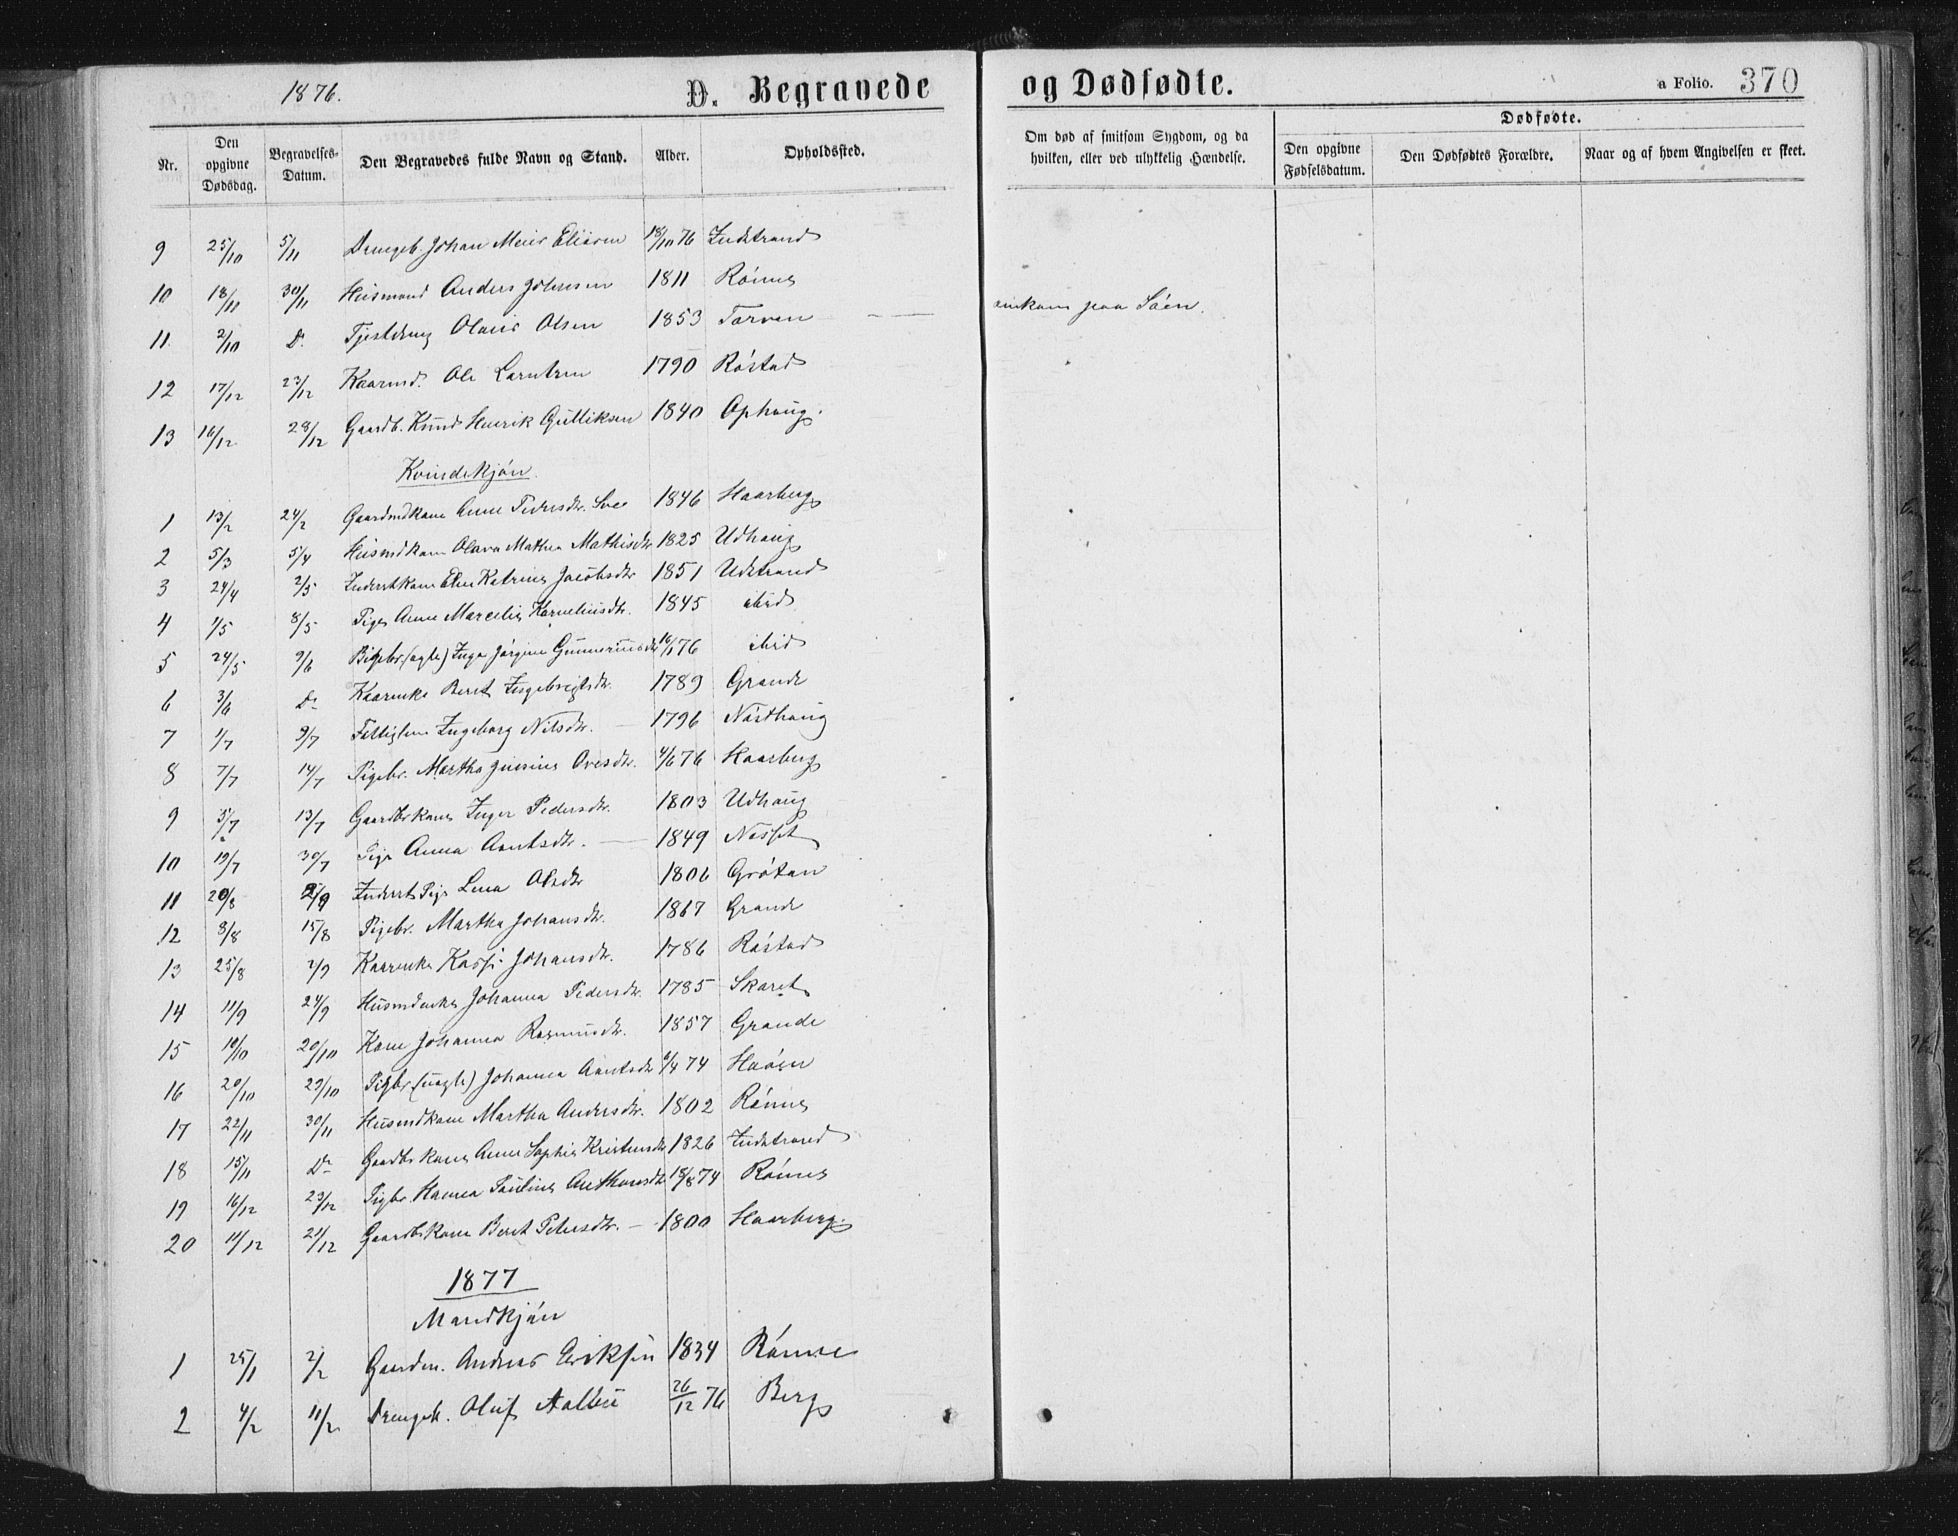 1876.
D. Begravede og Dødfødte.
a Folio. 370
Nr. Den opgivne Dødsdag. Begravelses-Datum. Den Begravedes fulde Navn og Stand. Alder. Opholdssted. Om død af smitsom Sygdom, og da hvilken, eller ved ulykkelig Hændelse. Dødfødte. Den opgivne Fødselsdatum. Den Dødfødtes Forældre. Naar og af hvem Angivelsen er skeet.
9 25/10 5/11 Drengeb. Johan Meier Eliasen 18/10 76 Indstrand
10 18/11 30/11 Husmand Anders Johnsen 1811 Rønne
11. 2/10 Do Tjestdreng Olaus Olsen 1853 Tarven — omkom paa Søen.
12 17/12 23/12 Kaarmd. Ole Larntzen 1790 Røstad
13 16/12 28/12 Gaardb. Knud Henrik Gulliksen 1840 Ophaug.
Kvindekjøn.
1 13/2 24/2 Gaardmdkone Anne Pedersdr. Svee 1846 Haarberg
2 5/3 5/4 Husmdkone Olava Mathea Mathisdr 1825 Udhaug
3 24/4 2/5 Inderstkone Elen Katrine Jacobsdr 1851 Udstrand
4 1/5 8/5 Pige Anne Marcelie Korneliusdr. 1845 ibid
5 24/5 9/6 Pigebr. (ægte) Inga Jørgine Gunneriusdr 16/1 76 ibid
6 3/6 Do Kaarenke Beret Ingebrigtsdr. 1789 Grande
7 1/7 9/7 Fattiglem Ingeborg Nilsdr. — 1796 Næsthaug
8 7/7 14/7 Pigebr. Martha Jensine Ovesdr. 4/6 76 Haarberg
9 5/7 13/7 Gaardbrkone Inger Pedersdr. 1803 Udhaug
10 19/7 30/7 Pige Anna Arntsdr. — 1849 Næsset
11 20/8 2/9 Inderst Pige Lena Olsdr 1806 Grøtan
12 8/8 15/8 Pigebr. Martha Johansdr. 1867 Grande
13 25/8 2/9 Kaarenke Kasfi Johansdr. 1786 Røstad
14 11/9 24/9 Husmdenke Johanna Pedersdr. 1785 Skaret
15 10/10 20/10 Kone Johanna Rasmusdr. 1857 Grande
16 20/10 29/10 Pigebr. (uægte) Johanna Arntsdr 6/4 74 Haøen
17 22/11 30/11 Husmdkone Martha Andersdr. 1802 Rønne
18 15/11 Do Gaardbrkone Anne Sophie Kristensdr 1826 Indstrand
19 16/12 23/12 Pigebr. Hanna Pauline Anthonsdr 18/8 74 Rønne
20 11/12 21/12 Gaardbrkone Beret Petersdr. — 1800 Haarberg.
1877
Mandkjøn
1 25/1 2/2 Gaardm. Andreas Eriksen 1834 Rønne
2 4/2 11/2 Drengeb. Oluf Aalbu 26/12 76 Berg